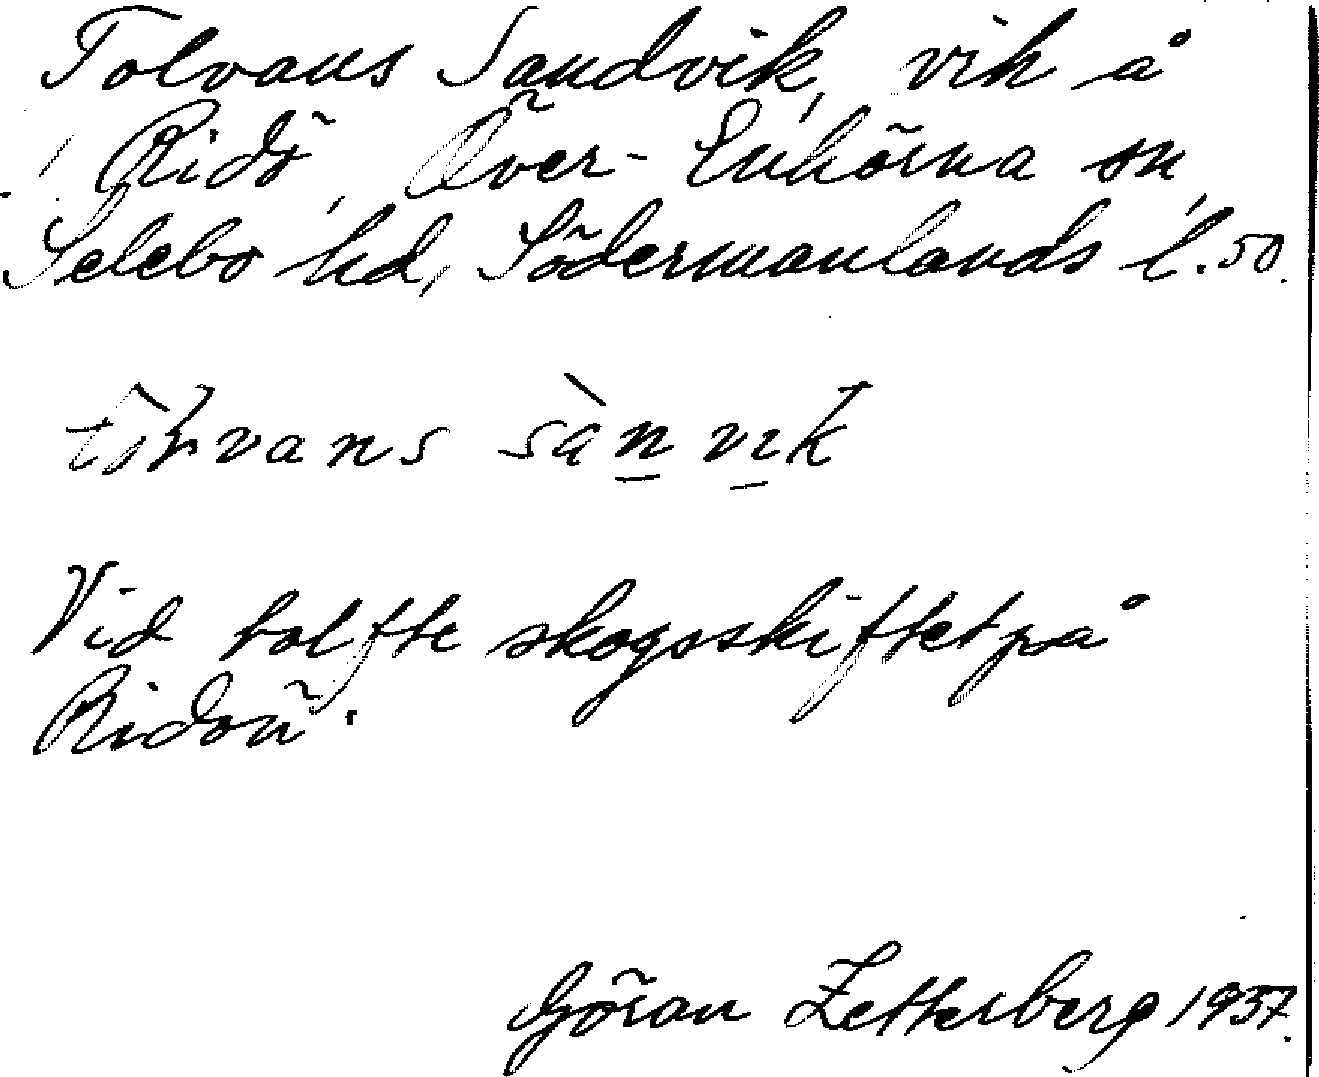 Tolvans Sandvik, vik å
Ridö, Över-Enhörna sn,
Selebo hd, Södermanlands l. 50.
vans sànvik
Vid tolfte skogsskiftet på
Ridön.
Göran Zetterberg 1937.